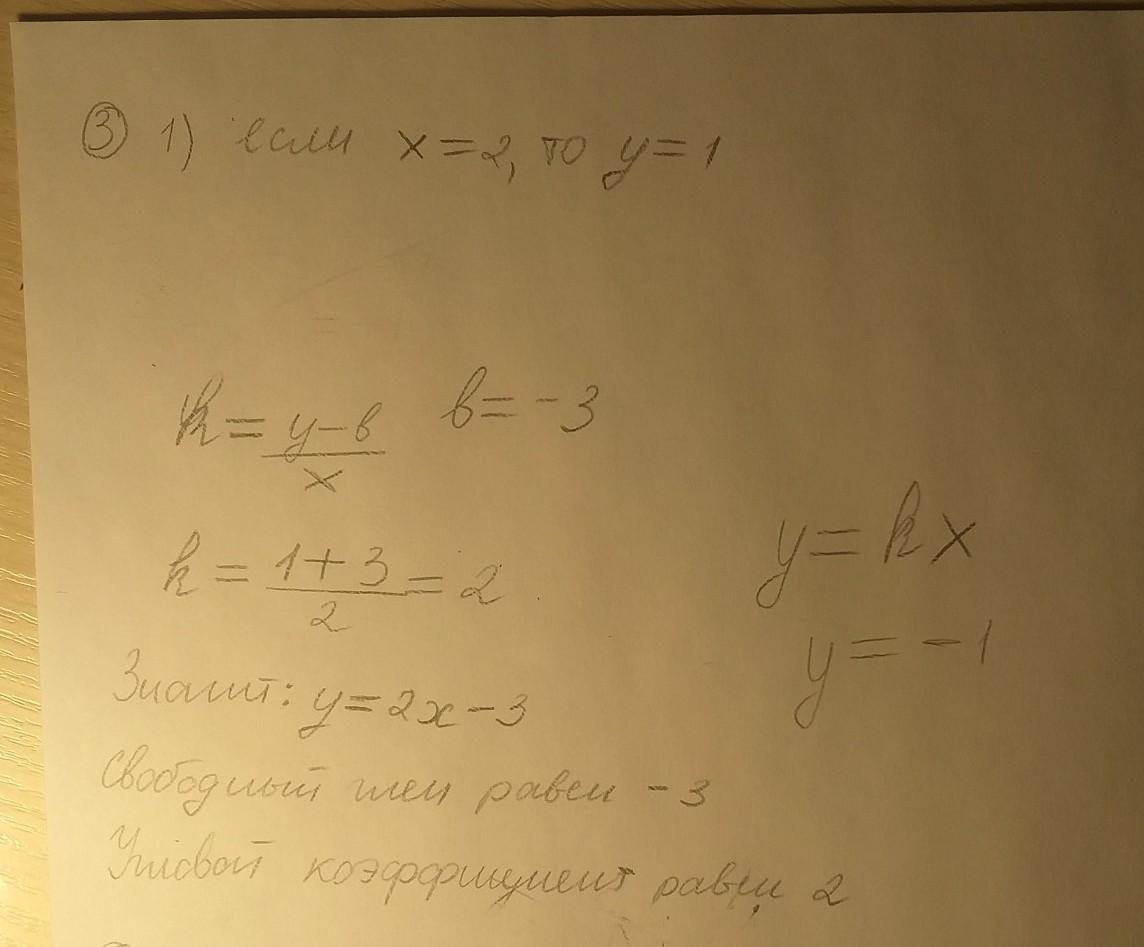 ③ 1) если x=2, то y=1
k = (y-b)/x b = -3
k = (1+3)/2 = 2
y = kx
y = -1
Значит: y=2x-3
Свободный член равен -3
Угловой коэффициент равен 2